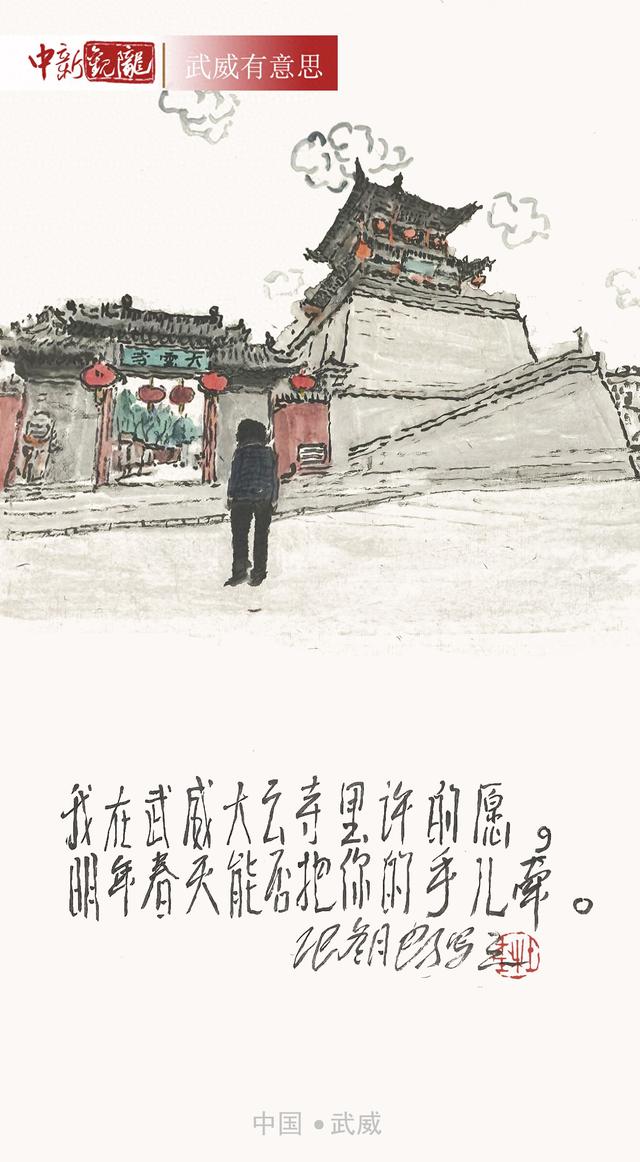 中新观陇 武威有意思
大云寺
我在武威大云寺里许的愿，
明年春天能否把你的手儿牵。
中国·武威